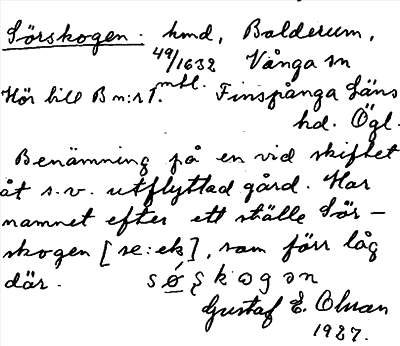 Sörskogen. hmd, Balderum,
49/1632 Vånga sn
Hör till B n:r 1. mtl. Finspånga läns
hd. Ögl.
Benämning på en vid skiftet
åt s.v. utflyttad gård. Har
namnet efter ett ställe Sör-
skogen [se: ek], som förr låg
där. sö́ʂkogən
Gustaf E. Olsson
1927.